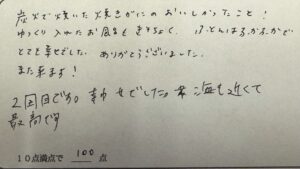 炭火で焼いた焼きがにのおいしかったこと!
ゆっくり入れたお風呂もきもちよく ふとんはふかふかで
とても幸せでした。ありがとうございました。
また来ます!
2回目です。幸せでした。海も近くて
最高です
10点満点で 100 点